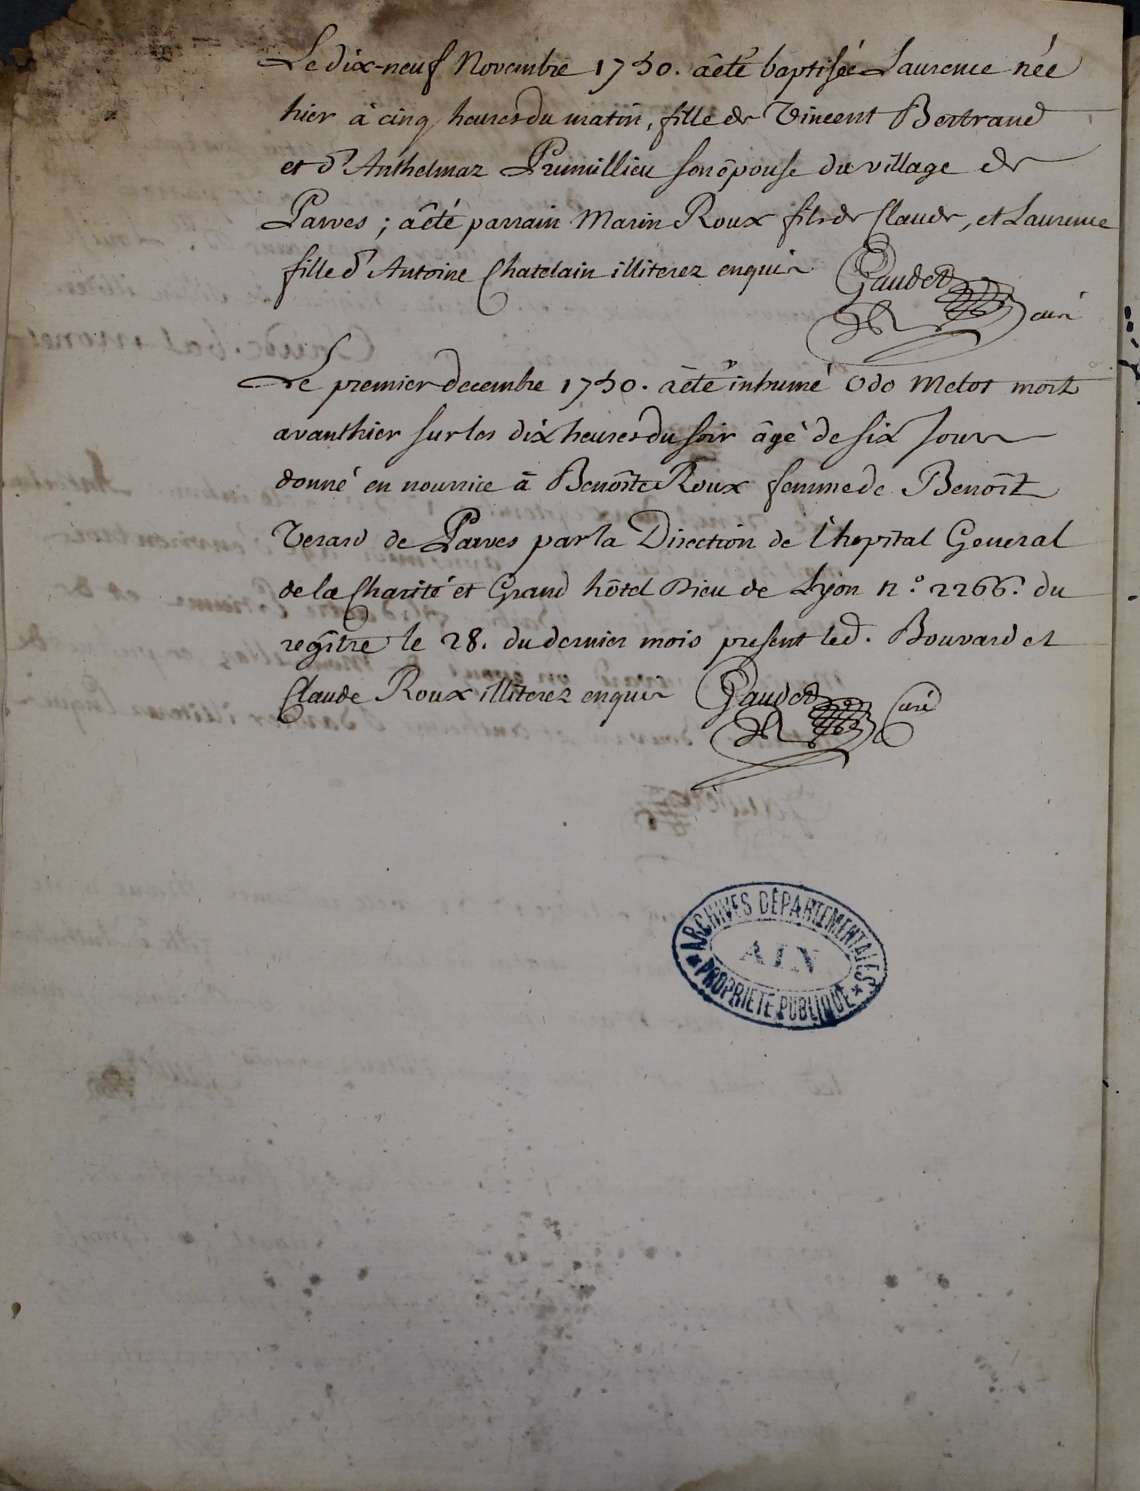 Le dix-neuf Novembre 1750. a êté baptisée Laurence née
hier à cinq heures du matin, fille de Vincent Bertrand
et d'Anthelmaz Prumillieu son êpouse du village de
Parves; a êté parrain Marin Roux fils de Claude, et Laurence
fille d'Antoine Chatelain illiterez enquis Gaudet curé
Le premier decembre 1750. a êté inhumé Odo Metot mort
avanthier sur les dix heures du soir âgé de six jours
donné en nourrice à Benoîte Roux femme de Benoît
Verard de Parves par la Direction de l'hopital General
de la Charité et Grand hôtel Dieu de Lyon n.o 2266. du
regître le 28. du dernier mois present led. Bouvard et
Claude Roux illiterez enquis Gaudet Curé
ARCHIVES DÉPARTEMENTALES
AIN
PROPRIETÉ PUBLIQUE